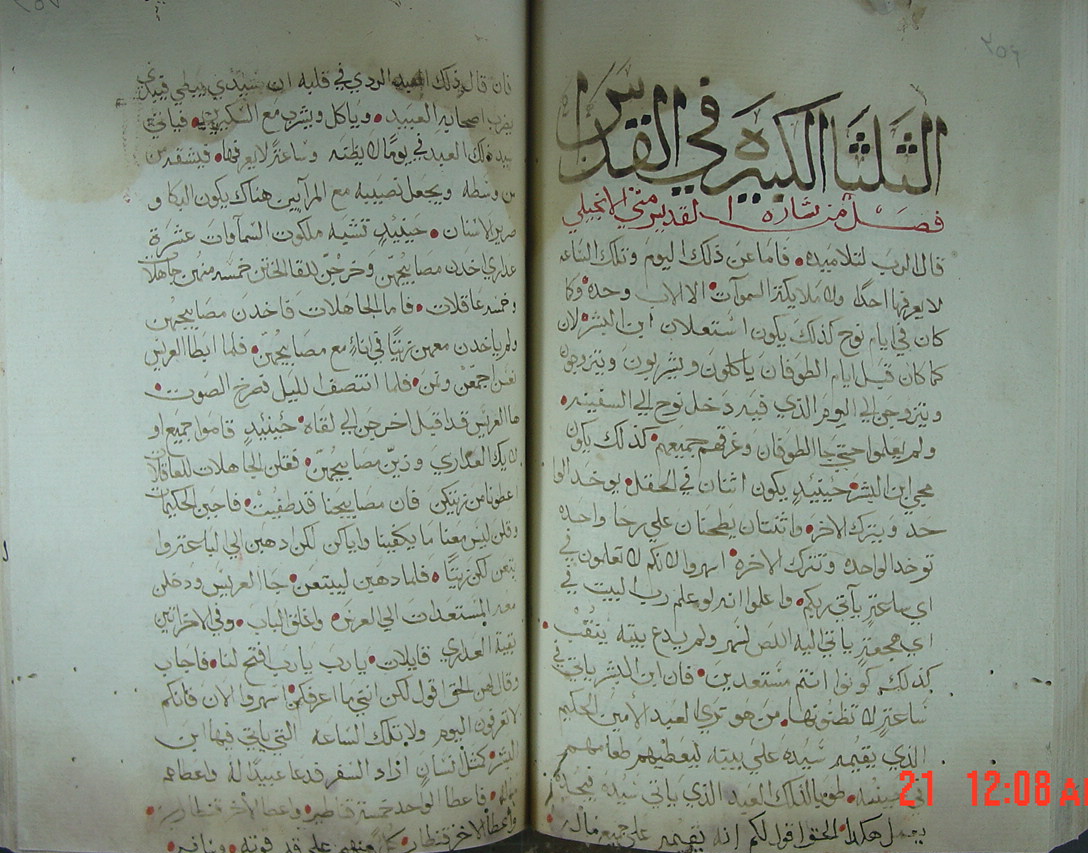 ٢٥٩
الثلثا الكبيره في القداس
فصل من بشارة القديس متي الانجيلي
قال الرب لتلاميده فاما عن ذلك اليوم وتلك الساعه
لا يعرفها احد ولا ملايكة السموات الا الاب وحده وكما
كان في ايام نوح كذلك يكون استعلان ابن البشر لان
كما كان قبل ايام الطوفان ياكلون ويشربون ويتزوجون
ويتزوجن الي اليوم الذي فيه دخل نوح الي السفينه
ولم يعلموا حتي جا الطوفان وغرقهم جميعهم كذلك يكون
مجي ابن البشر حينيدٍ يكون اثنان في الحقل يوخد الوا
حد ويترك الاخر واثنتان يطحنان علي رحا واحده
توخد الواحده وتترك الاخرة اسهروا لانكم لا تعلمون في
اي ساعةٍ ياتي ربكم واعلموا انه لو علم رب البيت في
اي هجعةٍ ياتي اليه اللص لسهر ولم يدع بيته ينقب
كذلك كونوا انتم مستعدين فان ابن البشر ياتي في
ساعةٍ لا تظنونها من هو تري العبد الأمين الحكيم
الذي يقيمه سيده علي بيته ليعطيهم طعامهم
في حينه طوبا لذلك العبد الذي ياتي سيده فيجده
يعمل هكذا الحق اقول لكم انه يقيمه علي جميع ماله
فان قال ذلك العبد الردي في قلبه ان سيدي يبطي فيبدي
يضرب اصحابه العبيد وياكل ويشرب مع السكيرين فياتي
سيد ذلك العبد في يومٍ لا يظنه وساعةٍ لا يعرفها فيشقه من
من وسطه ويجعل نصيبه مع المرآيين هناك يكون البكا و
صرير الاسنان حينيدٍ تشبه ملكوت السماوات عشرة
عداري اخدن مصابيحهن وخرجن للقا الختن خمسه منهن جاهلات
وخمسه عاقلات فاما الجاهلات فاخدن مصابيحهن
ولم ياخدن معهن زيتًا في اناءٍ مع مصابيحهن فلما ابطا العريس
نعس اجمعهن ونمن فلما انتصف الليل فصرخ الصوت
ها العريس قد اقبل اخرجن الي لقاه حينيدٍ قاموا جميع او
لايك العداري وزين مصابيحهن فقلن الجاهلات للعاقلات
اعطونا من زيتكن فان مصابيحنا قد طفيت فاجبن الحكيمات
وقلن ليس معنا ما يكفينا واياكن لكن ادهبن الي الباعة وا
بتعن لكن زيتًا فلما دهبن ليبتعن جا العريس ودخلن
معه المستعدات الي العرس واغلق الباب وفي الاخر اتين
بقية العداري قايلات يارب يارب افتح لنا فاجاب
وقال لهن الحق اقول لكن انني ما اعرفكن اسهروا الان فانكم
لا تعرفون اليوم ولا تلك الساعه التي ياتي فيها ابن
البشر كمثل انسانٍ اراد السفر فدعا عبيدًا له واعطاهم
ماله فاعطا الواحد خمسة قناطير واعطا الاخر قنطارين
واعطا الاخر قنطار كل منهم علي قدر قوته وسافر
21 12:08 A